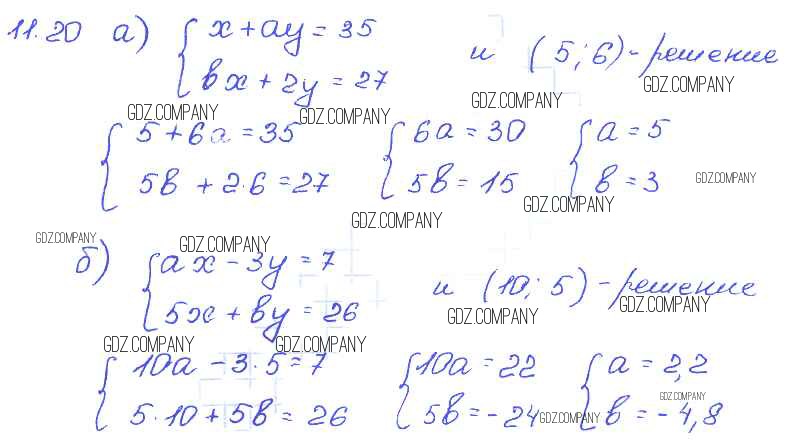 11.20 а) { x + ay = 35
bx + 2y = 27 и (5; 6) - решение
GDZ.COMPANY GDZ.COMPANY GDZ.COMPANY GDZ.COMPANY
{ 5 + 6a = 35 { 6a = 30 { a = 5
5b + 2·6 = 27 5b = 15 b = 3 GDZ.COMPANY
GDZ.COMPANY GDZ.COMPANY
GDZ.COMPANY GDZ.COMPANY
б) { ax - 3y = 7
5x + by = 26 и (10; 5) - решение
GDZ.COMPANY GDZ.COMPANY
GDZ.COMPANY GDZ.COMPANY
{ 10a - 3·5 = 7 { 10a = 22 { a = 2,2
GDZ.COMPANY
5·10 + 5b = 26 5b = -24 b = -4,8
GDZ.COMPANY